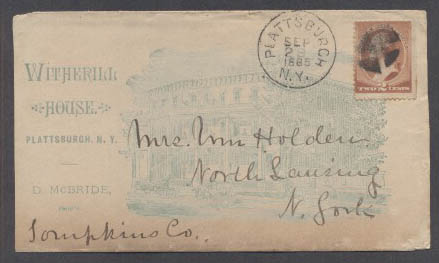 WITHERILL
HOUSE.
PLATTSBURGH, N.Y.
D. McBRIDE,
PLATTSBURGH
SEP
1885
N.Y.
TWO CENTS
Mrs. Wm Holden
North Lansing
N. York
Tompkins Co.